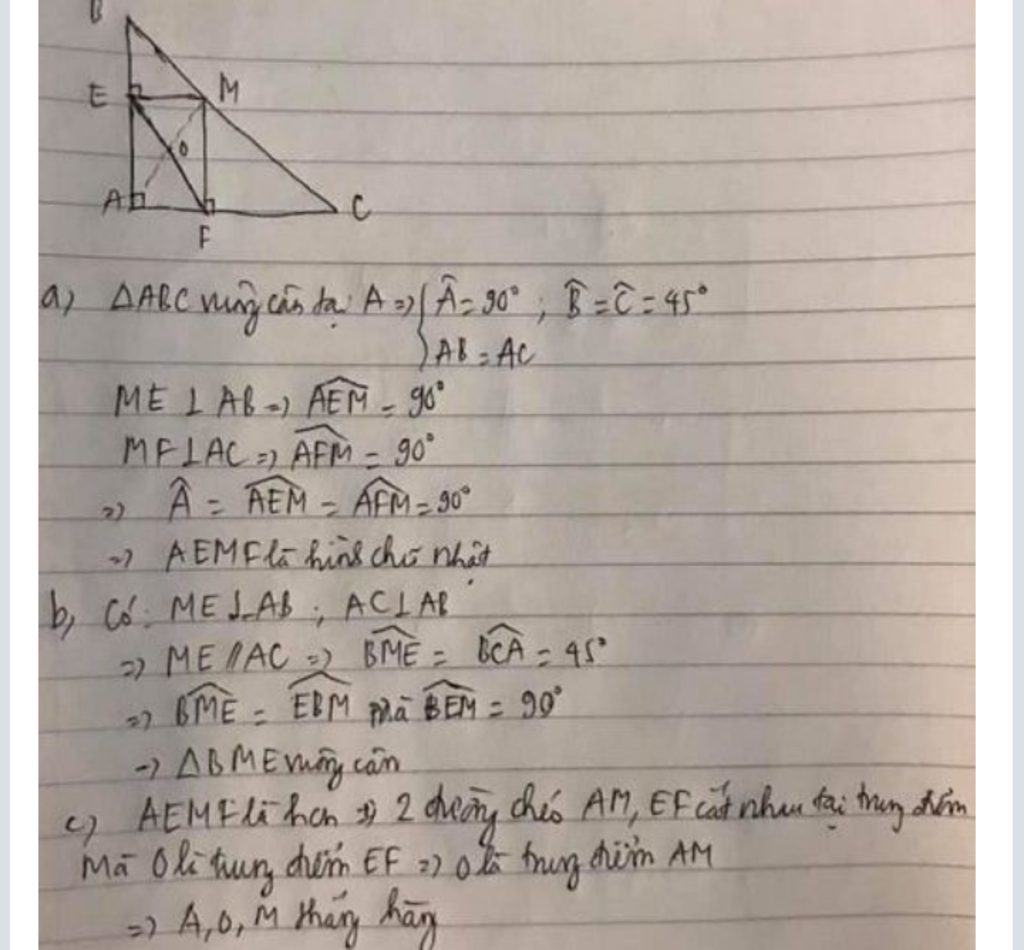 B
E M
O
A C
F
a) ΔABC vuông cân tại A => { Â = 90° ; B̂ = Ĉ = 45°
AB = AC
ME ⊥ AB => AEM̂ = 90°
MF ⊥ AC => AFM̂ = 90°
=> Â = AEM̂ = AFM̂ = 90°
=> AEMF là hình chữ nhật
b, Có: ME ⊥ AB ; AC ⊥ AB
=> ME // AC => BMÊ = BCÂ = 45°
=> BMÊ = EBM̂ mà BEM̂ = 90°
-> ΔBME vuông cân
c) AEMF là hcn => 2 đường chéo AM, EF cắt nhau tại trung điểm
Mà O là trung điểm EF => O là trung điểm AM
=> A, O, M thẳng hàng